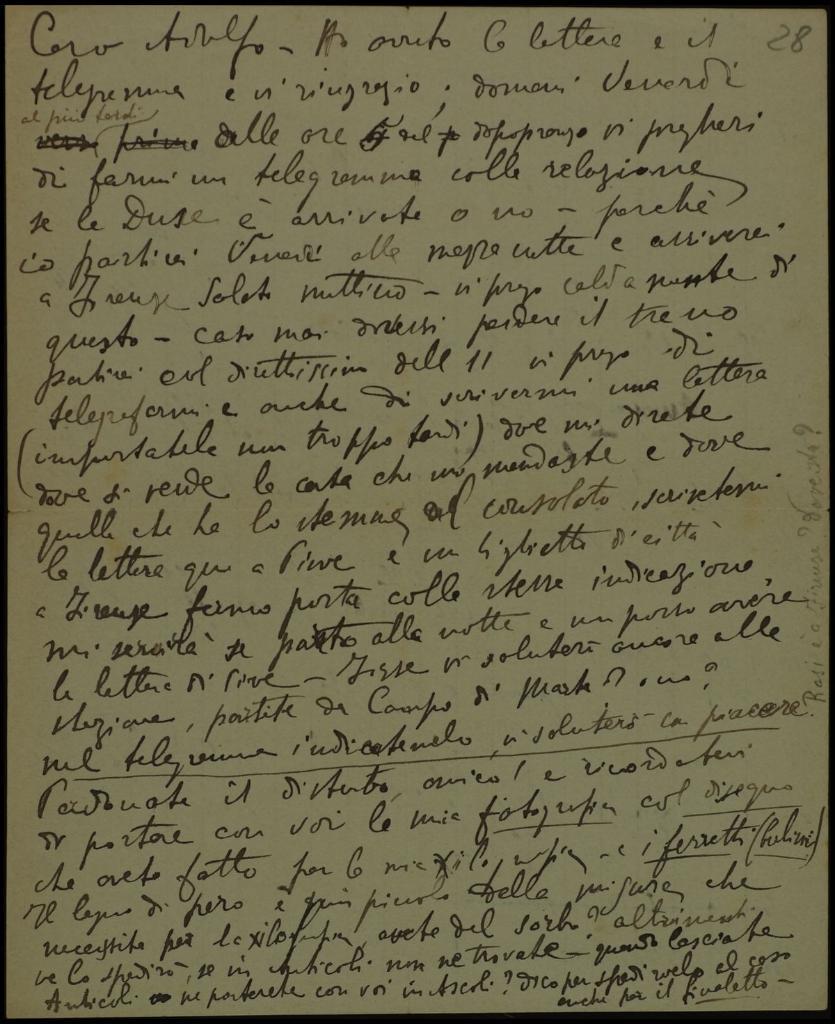 28
Caro Adolfo – Ho avuto la lettera e il
telegramma e vi ringrazio; domani Venerdì
al più tardi
verso prima delle ore 5 del p dopopranzo vi pregherei
di farmi un telegramma colla relazione
se la Duse è arrivata o no – perchè
io partirei Venerdì alla mezza notte e arriverei
a Firenze Sabato mattina – vi prego caldamente di
questo – caso mai dovessi perdere il treno
partirei col direttissimo dell 11 vi prego di
telegrafarmi e anche di scrivermi una lettera
(impostatela non troppo tardi) dove mi direte
dove si vende la carta che mi mandaste e dove
quella che ha lo stemma del consolato, scrivetemi
la lettera qui a Pieve e un biglietto di città
a Firenze fermo posta colle stesse indicazioni
mi servirà se parto alla notte e non posso avere
la lettera di Pieve – Forse vi saluterò ancora alla
stazione, partite da Campo di Marte o no?
nel telegramma indicatemelo, vi saluterò con piacere.
Perdonate il disturbo, amico! e ricordatevi
di portare con voi la mia fotografia col disegno
che avete fatto per la mia xilografia – e i ferretti (bulini)
Il legno di pero è più piccolo della misura che
necessita per la xilografia, avete del sorbo? altrimenti
ve lo spedirò, se in Anticoli non ne trovate – quando lasciate
Anticoli ne porterete con voi in Ascoli? dico per spedirvelo al caso
anche per il fivoletto –
Rasi è a Firenze? Dove sta?